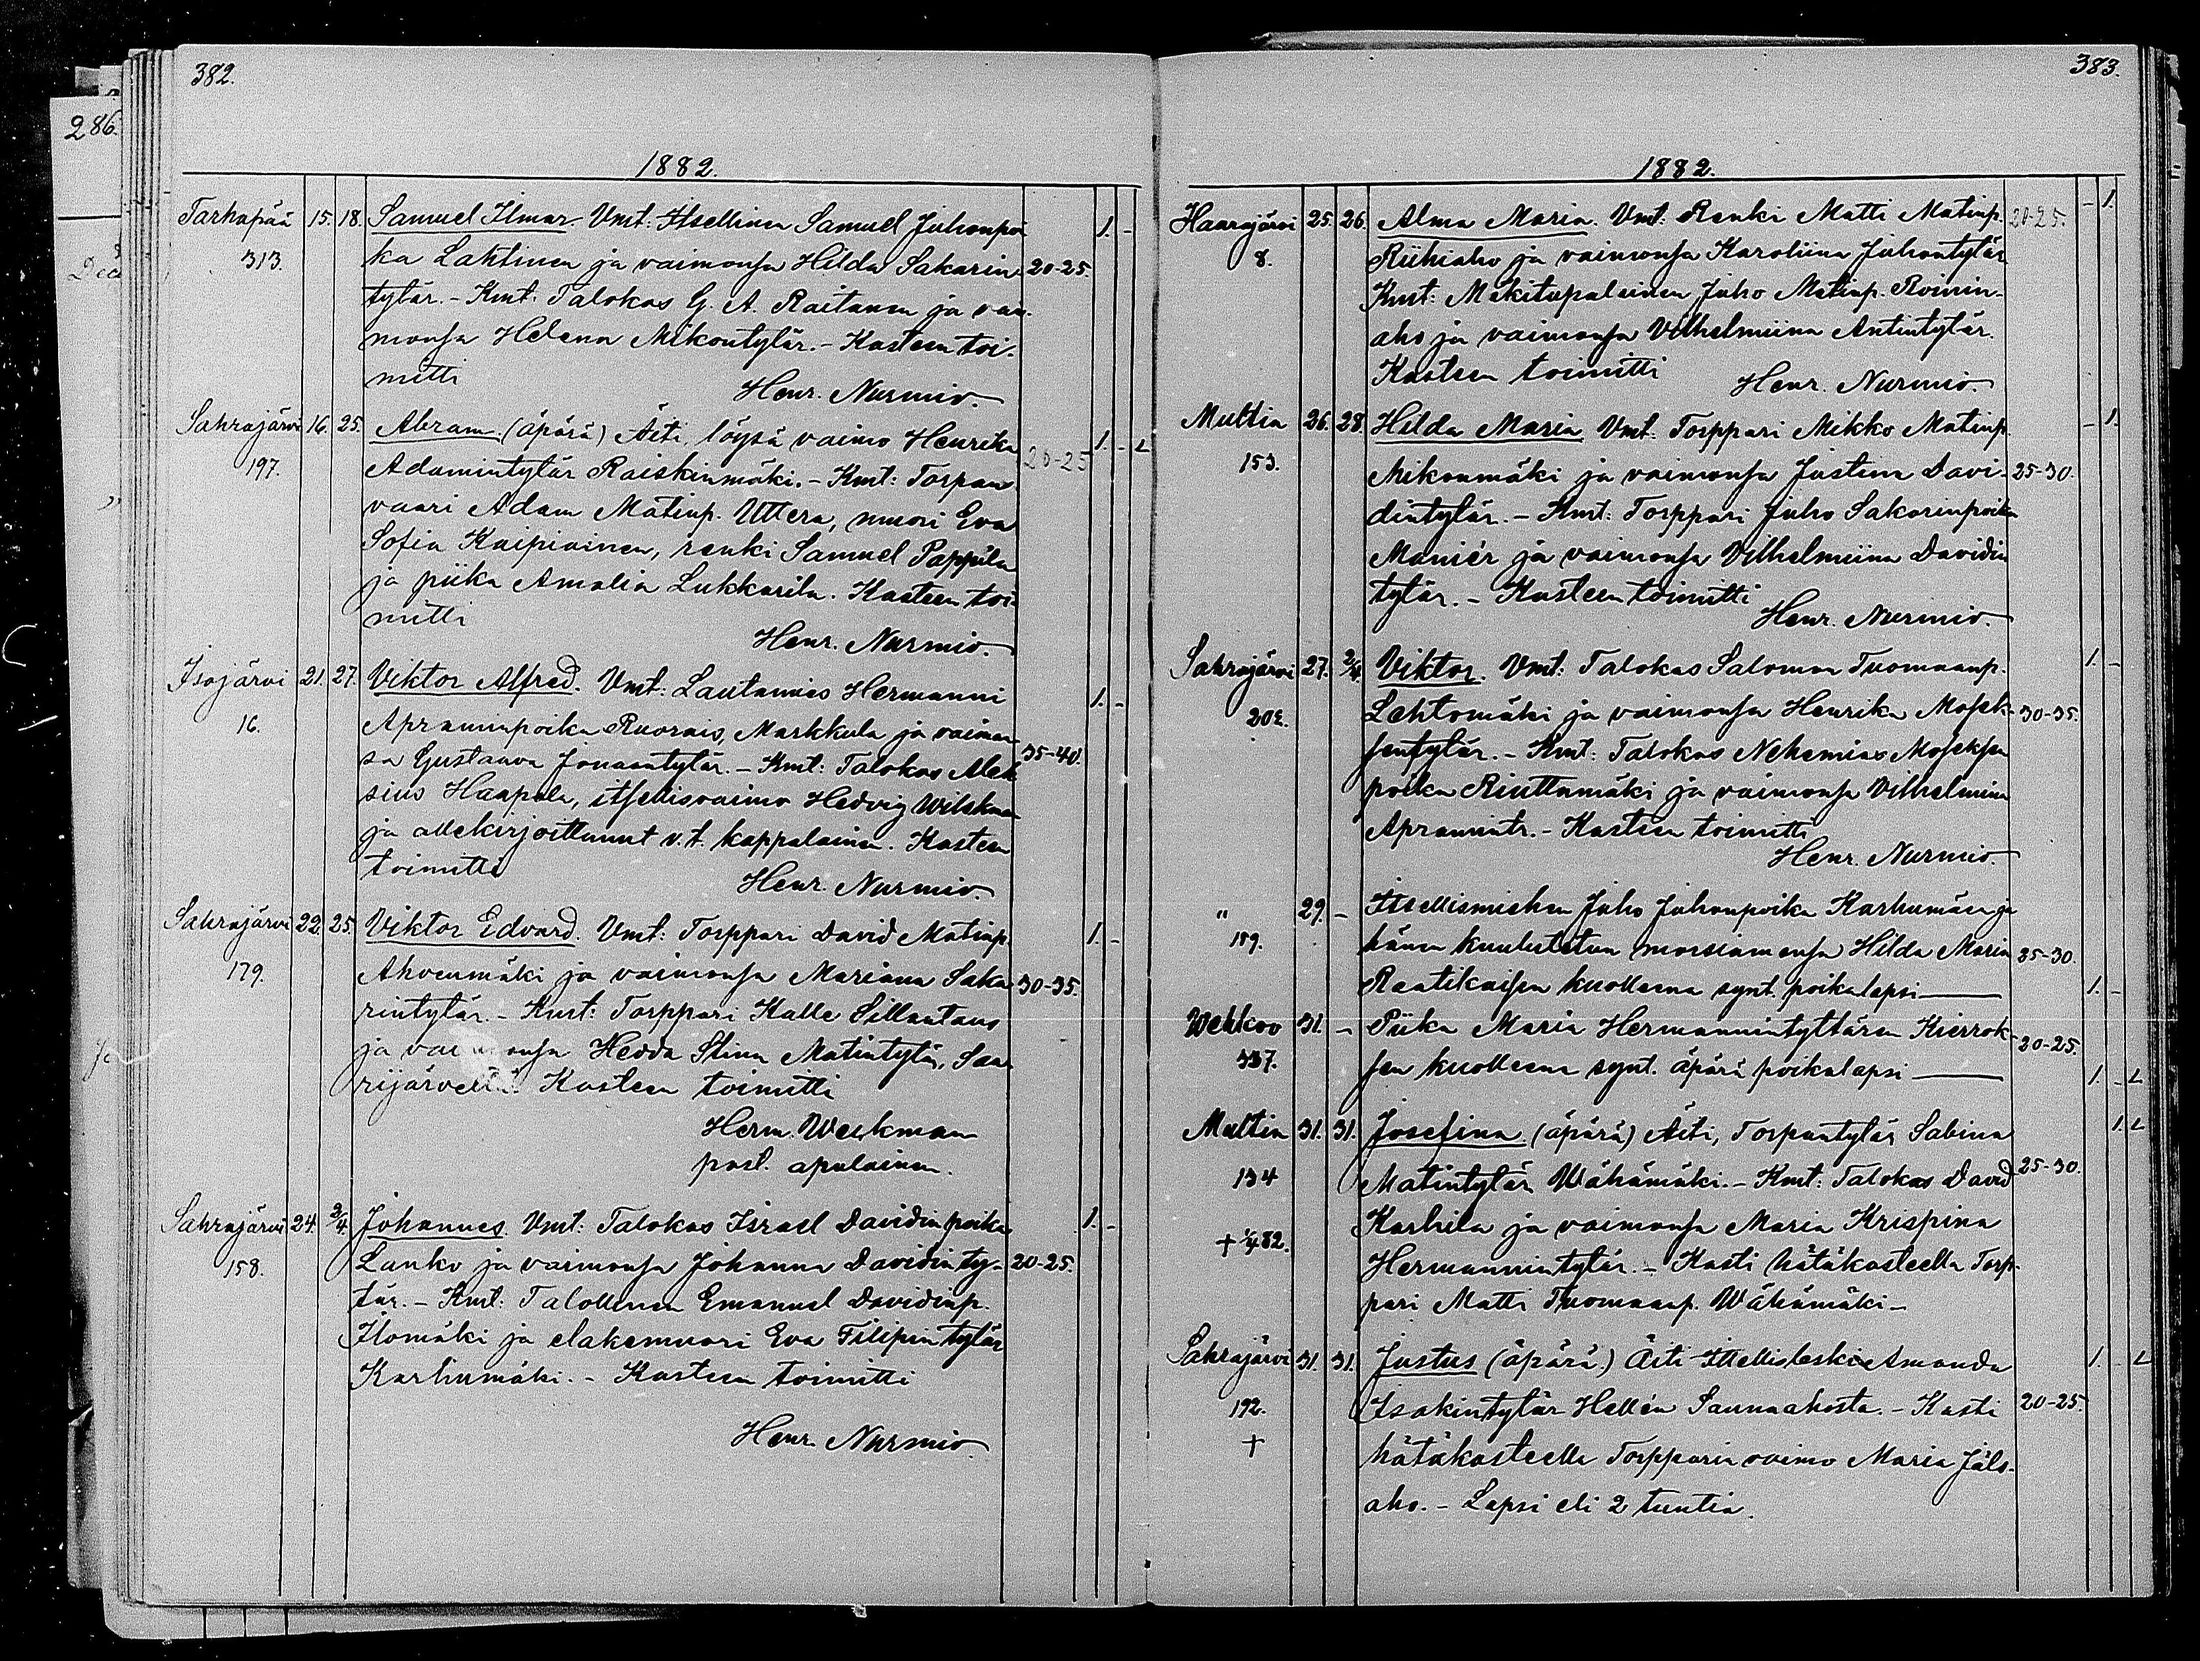 382.
286.
1882.
Tarhapää 15. 18. Samuel Ilmar. Vmt: Itsellinen Samuel Juhonpoi 1. -
313. ka Lahtinen ja vaimonsa Hilda Sakarin 20-25.
tytär. - Kmt: Talokas G. A. Raitanen ja vai
monsa Helena Mikontytär. - Kasteen toi-
mitti
Henr. Nurmio.
Sahrajärvi 16. 25. Abram (äpärä) Äiti, löysä vaimo Henrika 1. - L
197. Adamintytär Raiskinmäki. - Kmt: Torpan 20-25
vaari Adam Matinp. Uttera, muori Eva
Sofia Kaipiainen, renki Samuel Pappila
ja piika Amalia Lukkarila. Kasteen toi-
mitti
Henr. Nurmio.
Isojärvi 21. 27. Viktor Alfred. Vmt: Lautamies Hermanni 1. -
16. Apraminpoika Ruorais, Markkula ja vaimon
sa Gustaava Jonaantytär. - Kmt: Talokas Alek 35-40.
sius Haapala, itsellisvaimo Hedvig Wilskman
ja allekirjoittanut v.t. kappalainen. Kasteen
toimitti
Henr. Nurmio.
Sahrajärvi 22. 25. Viktor Edvard. Vmt: Torppari David Matinp. 1. -
179. Ahvenmäki ja vaimonsa Mariana Saka 30-35.
rintytär. - Kmt: Torppari Kalle Sillantaus
ja vaimonsa Hedda Stina Matintytär, Saa
rijärveltä. Kasteen toimitti
Herm. Weckman
past. apulainen.
Sahrajärvi 24. 2/4. Johannes. Vmt: Talokas Israel Davidinpoika 1. -
158. Lanko ja vaimonsa Johanna Davidinty- 20-25.
tär. - Kmt: Talollinen Emanuel Davidinp.
Ilomäki ja eläkemuori Eva Filipintytär
Karhumäki. - Kasteen toimitti
Henr. Nurmio
383.
1882.
Haarajärvi 25. 26. Alma Maria. Vmt: Renki Matti Matinp. 20-25. - 1.
8. Riihiaho ja vaimonsa Karoliina Juhontytär
Kmt: Mäkitupalainen Juho Matinp. Roinin-
aho ja vaimonsa Vilhelmiina Antintytär.
Kasteen toimitti
Henr. Nurmio
Multia 26. 28. Hilda Maria Vmt: Torppari Mikko Matinp. - 1.
153. Mikonmäki ja vaimonsa Justina Davi- 25-30.
dintytär. - Kmt: Torppari Juho Sakarinpoika
Maniér ja vaimonsa Vilhelmiina Davidin
tytär. - Kasteen toimitti
Henr. Nurmio.
Sahrajärvi 27. 2/4 Viktor. Vmt: Talokas Salomon Tuomaanp. 1. -
Lehtomäki ja vaimonsa Henrika Mosek- 30-35.
sentytär. - Kmt: Talokas Nehemias Moseksen
poika Riuttamäki ja vaimonsa Vilhelmiina
Apramintr. - Kasteen toimitti
Henr. Nurmio.
" 29. - Itsellismiehen Juho Juhonpoika Karhumäen ja
189. hänen kuulutetun morsiamensa Hilda Maria 25-30.
Raatikaisen kuolleena synt. poikalapsi — 1. -
Wehkoo 31. - Piika Maria Hermannintyttären Kierrok- 20-25.
337. sen kuolleena synt. äpärä poikalapsi — 1. - L
Multia 31. 31. Josefina (äpärä) Äiti, Torpantytär Sabina 1. L
134 Matintytär Wähämäki. - Kmt: Talokas David 25-30.
Karhila ja vaimonsa Maria Krispina
+ 1/4 82. Hermannintytär. - Kasti hätäkasteella Torp-
pari Matti Tuomaanp. Wähämäki -
Sahrajärvi 31. 31. Justus (äpärä.) Äiti Itsellisleski Amanda 1. - L
192. Isakintytär Hellén Saunaahosta. - Kasti 20-25.
+ hätäkasteella Torpparin vaimo Maria Jäls-
aho. - Lapsi eli 2 tuntia.